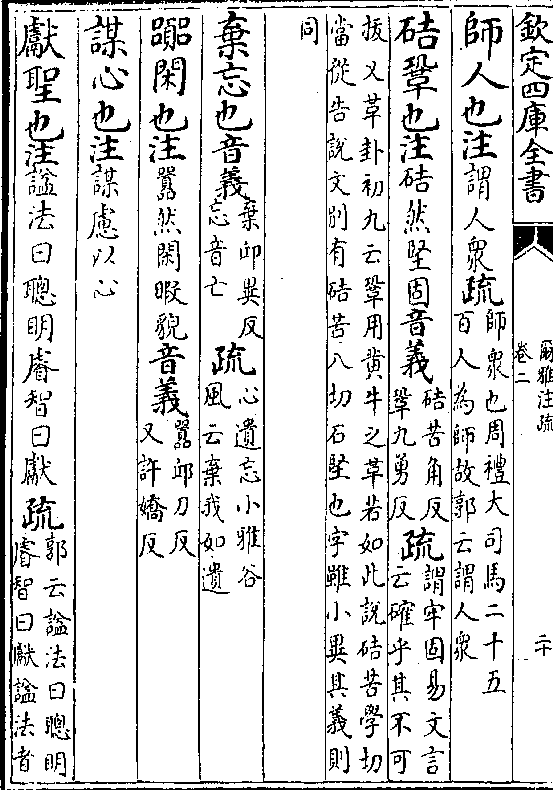 欽定四庫全書
爾雅注疏
卷二
二十
師人也注謂人衆疏師衆也周禮大司馬二十五
百人為師故郭云謂人衆
硈鞏也注硈然堅固音義硈苦角反
鞏九勇反疏謂牢固易文言
云確乎其不可
拔又革卦初九云鞏用黄牛之革若如此說硈苦學切
當從告說文别有硈苦八切石堅也字雖小異其義則
同
棄忘也音義棄邱異反
忘音亡疏心遺忘小雅谷
風云棄我如遺
嚻閑也注嚻然閑暇貌音義嚻邱刀反
又許嬌反
謀心也注謀慮以心
獻聖也注諡法曰聰明睿智曰獻疏郭云諡法曰聰明
睿智曰獻諡法者